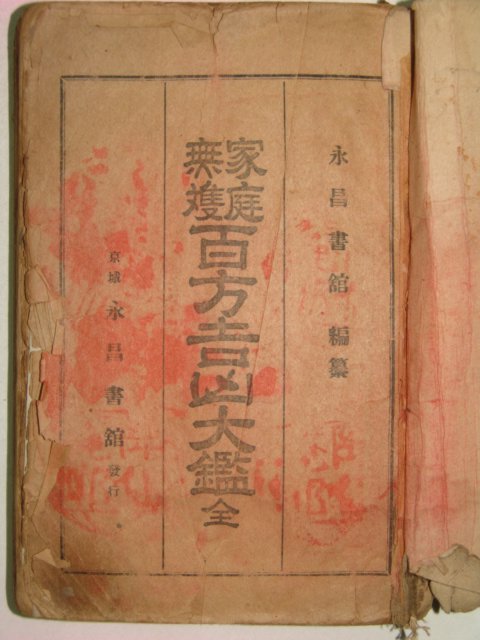 永昌書舘 編纂
家庭
無雙
百方吉凶大鑑 全
京城 永昌書舘 發行